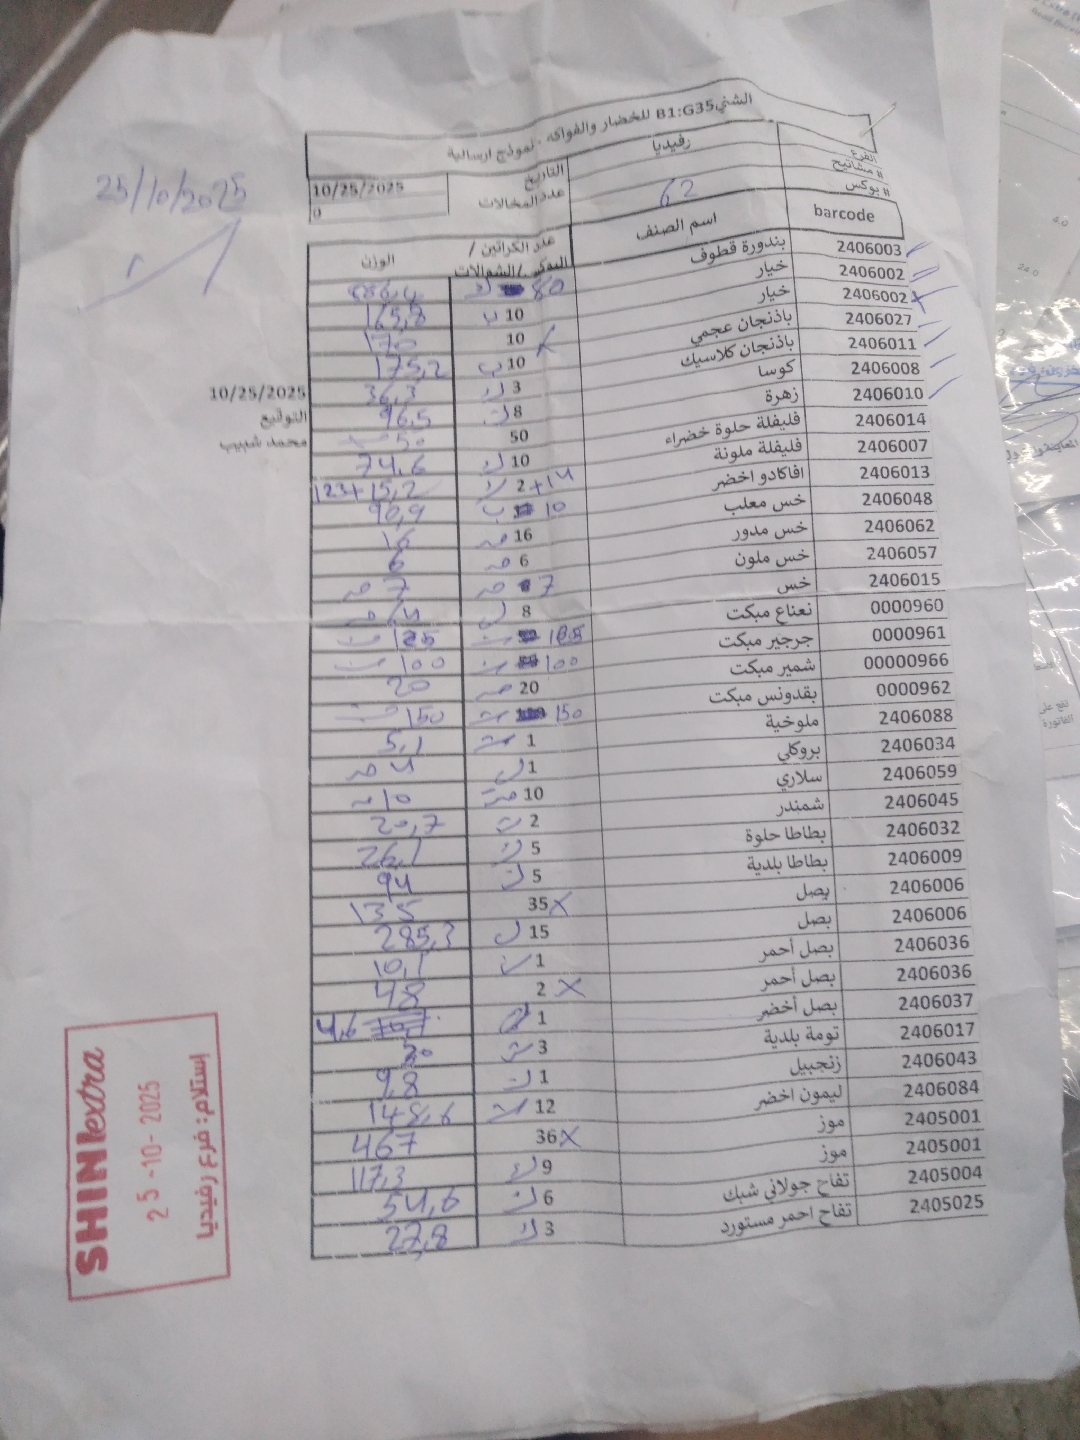 الشني B1:G35 للخضار والفواكه - نموذج ارسالية
الفرع رفيديا التاريخ 10/25/2025
# مشاتيح عدد المخالات 0
# بوكس 62
25/10/2025
barcode اسم الصنف عدد الكراتين / البوكس / الشوالات الوزن
2406003 بندورة قطوف 80 ك
2406002 خيار 10 ب 165,8
2406002 خيار 10 170
2406027 باذنجان عجمي 10 ب 175,2
2406011 باذنجان كلاسيك 3 ك 36,3
2406008 كوسا 8 ك 96,5
2406010 زهرة 50 50
2406014 فليفلة حلوة خضراء 10 ك 74,6
2406007 فليفلة ملونة 2+14 ك 123+15,2
2406013 افاكادو اخضر 10 ب 90,9
2406048 خس معلب 16 16
2406062 خس مدور 6 6
2406057 خس ملون 7 7
2406015 خس 8
0000960 نعناع مبكت 125
0000961 جرجير مبكت 100 100
00000966 شمير مبكت 20 20
0000962 بقدونس مبكت 150 150
2406088 ملوخية 1 5,1
2406034 بروكلي 1 4
2406059 سلاري 10 10
2406045 شمندر 2 20,7
2406032 بطاطا حلوة 5 ك 26,1
2406009 بطاطا بلدية 5 ك 94
2406006 بصل 35 X 135
2406006 بصل 15 285,3
2406036 بصل أحمر 1 10,1
2406036 بصل أحمر 2 X 48
2406037 بصل أخضر 1 4,6
2406017 تومة بلدية 3
2406043 زنجبيل 1 ك 9,8
2406084 ليمون اخضر 12 148,6
2405001 موز 36 X 467
2405001 موز 9 ك 117,3
2405004 تفاح جولاني شبك 6 ك 54,6
2405025 تفاح احمر مستورد 3 ك 27,8
10/25/2025
التوقيع
محمد شبيب
SHINI extra
25-10-2025
إستلام: فرع رفيديا